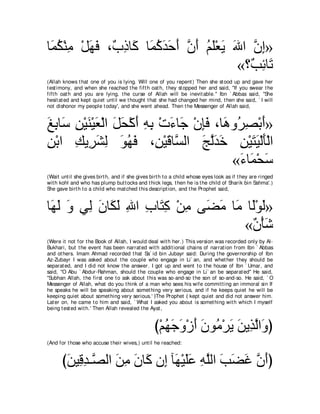 «إِنَّ اللهَ يَعْلَمُ أَنَّ أَحَدَكُمَا كَاذِبٌ، فَهَلْ مِنْكُمَا
تَائِبٌ؟»
(Allah knows that one of you is lying. Will one of you repent) Then she stood up and gave her
testimony, and when she reached the fifth oath, they stopped her and said, "If you swear the
fifth oath and you are lying, the curse of Allah will be inevitable.'' Ibn `Abbas said, "She
hesitated and kept quiet until we thought that she had changed her mind, then she said, `I will
not dishonor my people today', and she went ahead. Then the Messenger of Allah said,
«أَبْصِرُوهَا، فَإِنْ جَاءَتْ بِهِ أَكْحَلَ الْعَيْنَيْنِ سَابِغَ
الْأَلْيَتَيْنِ خَدَلَّجَ السَّاقَيْنِ، فَهُوَ لِشَرِيكِ ابْنِ
سَحْمَاءَ»
(Wait until she gives birth, and if she gives birth to a child whose eyes look as if they are ringed
with kohl and who has plump buttocks and thick legs, then he is the child of Sharik bin Sahma'.)
She gave birth to a child who matched this description, and the Prophet said,
«لَوْلَا مَا مَضَى مِنْ كِتَابِ اللهِ لَكَانَ لِي وَ لَهَا
شَأْنٌ»
(Were it not for the Book of Allah, I would deal with her.) This version was recorded only by Al-
Bukhari, but the event has been narrated with additional chains of narration from Ibn `Abbas
and others. Imam Ahmad recorded that Sa`id bin Jubayr said: During the governorship of Ibn
Az-Zubayr I was asked about the couple who engage in Li`an, and whether they should be
separated, and I did not know the answer. I got up and went to the house of Ibn `Umar, and
said, "O Abu `Abdur-Rahman, should the couple who engage in Li`an be separated'' He said,
"Subhan Allah, the first one to ask about this was so-and-so the son of so-and-so. He said, `O
Messenger of Allah, what do you think of a man who sees his wife committing an immoral sin If
he speaks he will be speaking about something very serious, and if he keeps quiet he will be
keeping quiet about something very serious.' (The Prophet ) kept quiet and did not answer him.
Later on, he came to him and said, `What I asked you about is something with which I myself
being tested with.' Then Allah revealed the Ayat,
(وَالَّذِينَ يَرْمُونَ أَزْوَجَهُمْ)
(And for those who accuse their wives,) until he reached:
(أَنَّ غَضَبَ اللَّهِ عَلَيْهَآ إِن كَانَ مِنَ الصَّـدِقِينَ)